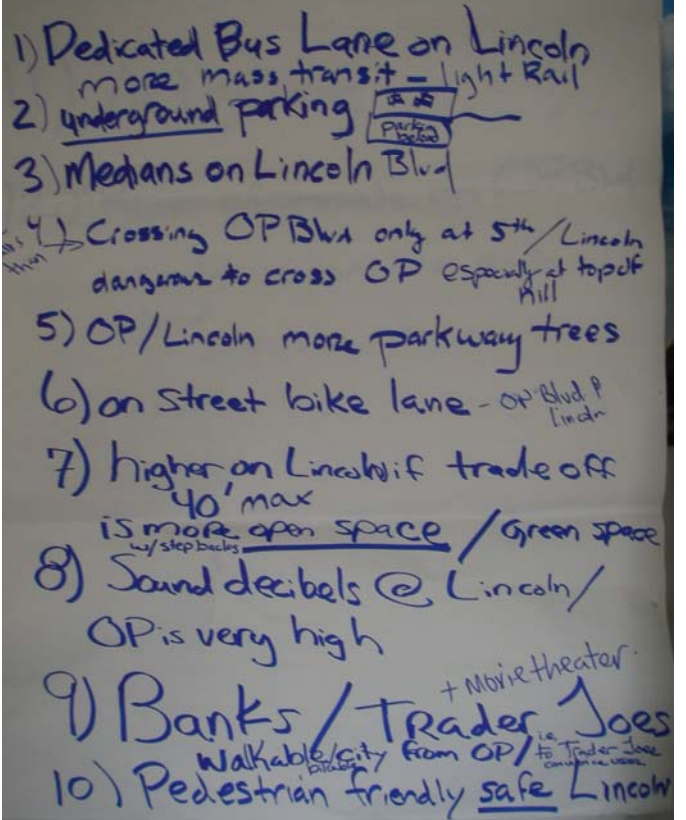 1) Dedicated Bus Lane on Lincoln
more mass transit - light Rail
2) underground parking
Parking below
3) Medians on Lincoln Blvd
4) Crossing OP Blvd only at 5th / Lincoln
dangerous to cross OP especially at top of
hill
5) OP/Lincoln more parkway trees
6) on street bike lane - OP Blvd &
Lincoln
7) higher on Lincoln if trade off
40' max
is more open space / Green space
w/ step backs
8) Sound decibels @ Lincoln /
OP is very high
+ Movie theater.
9) Banks / Trader Joes
Walkable / city from OP / i.e. to Trader Joes
10) Pedestrian friendly safe Lincoln